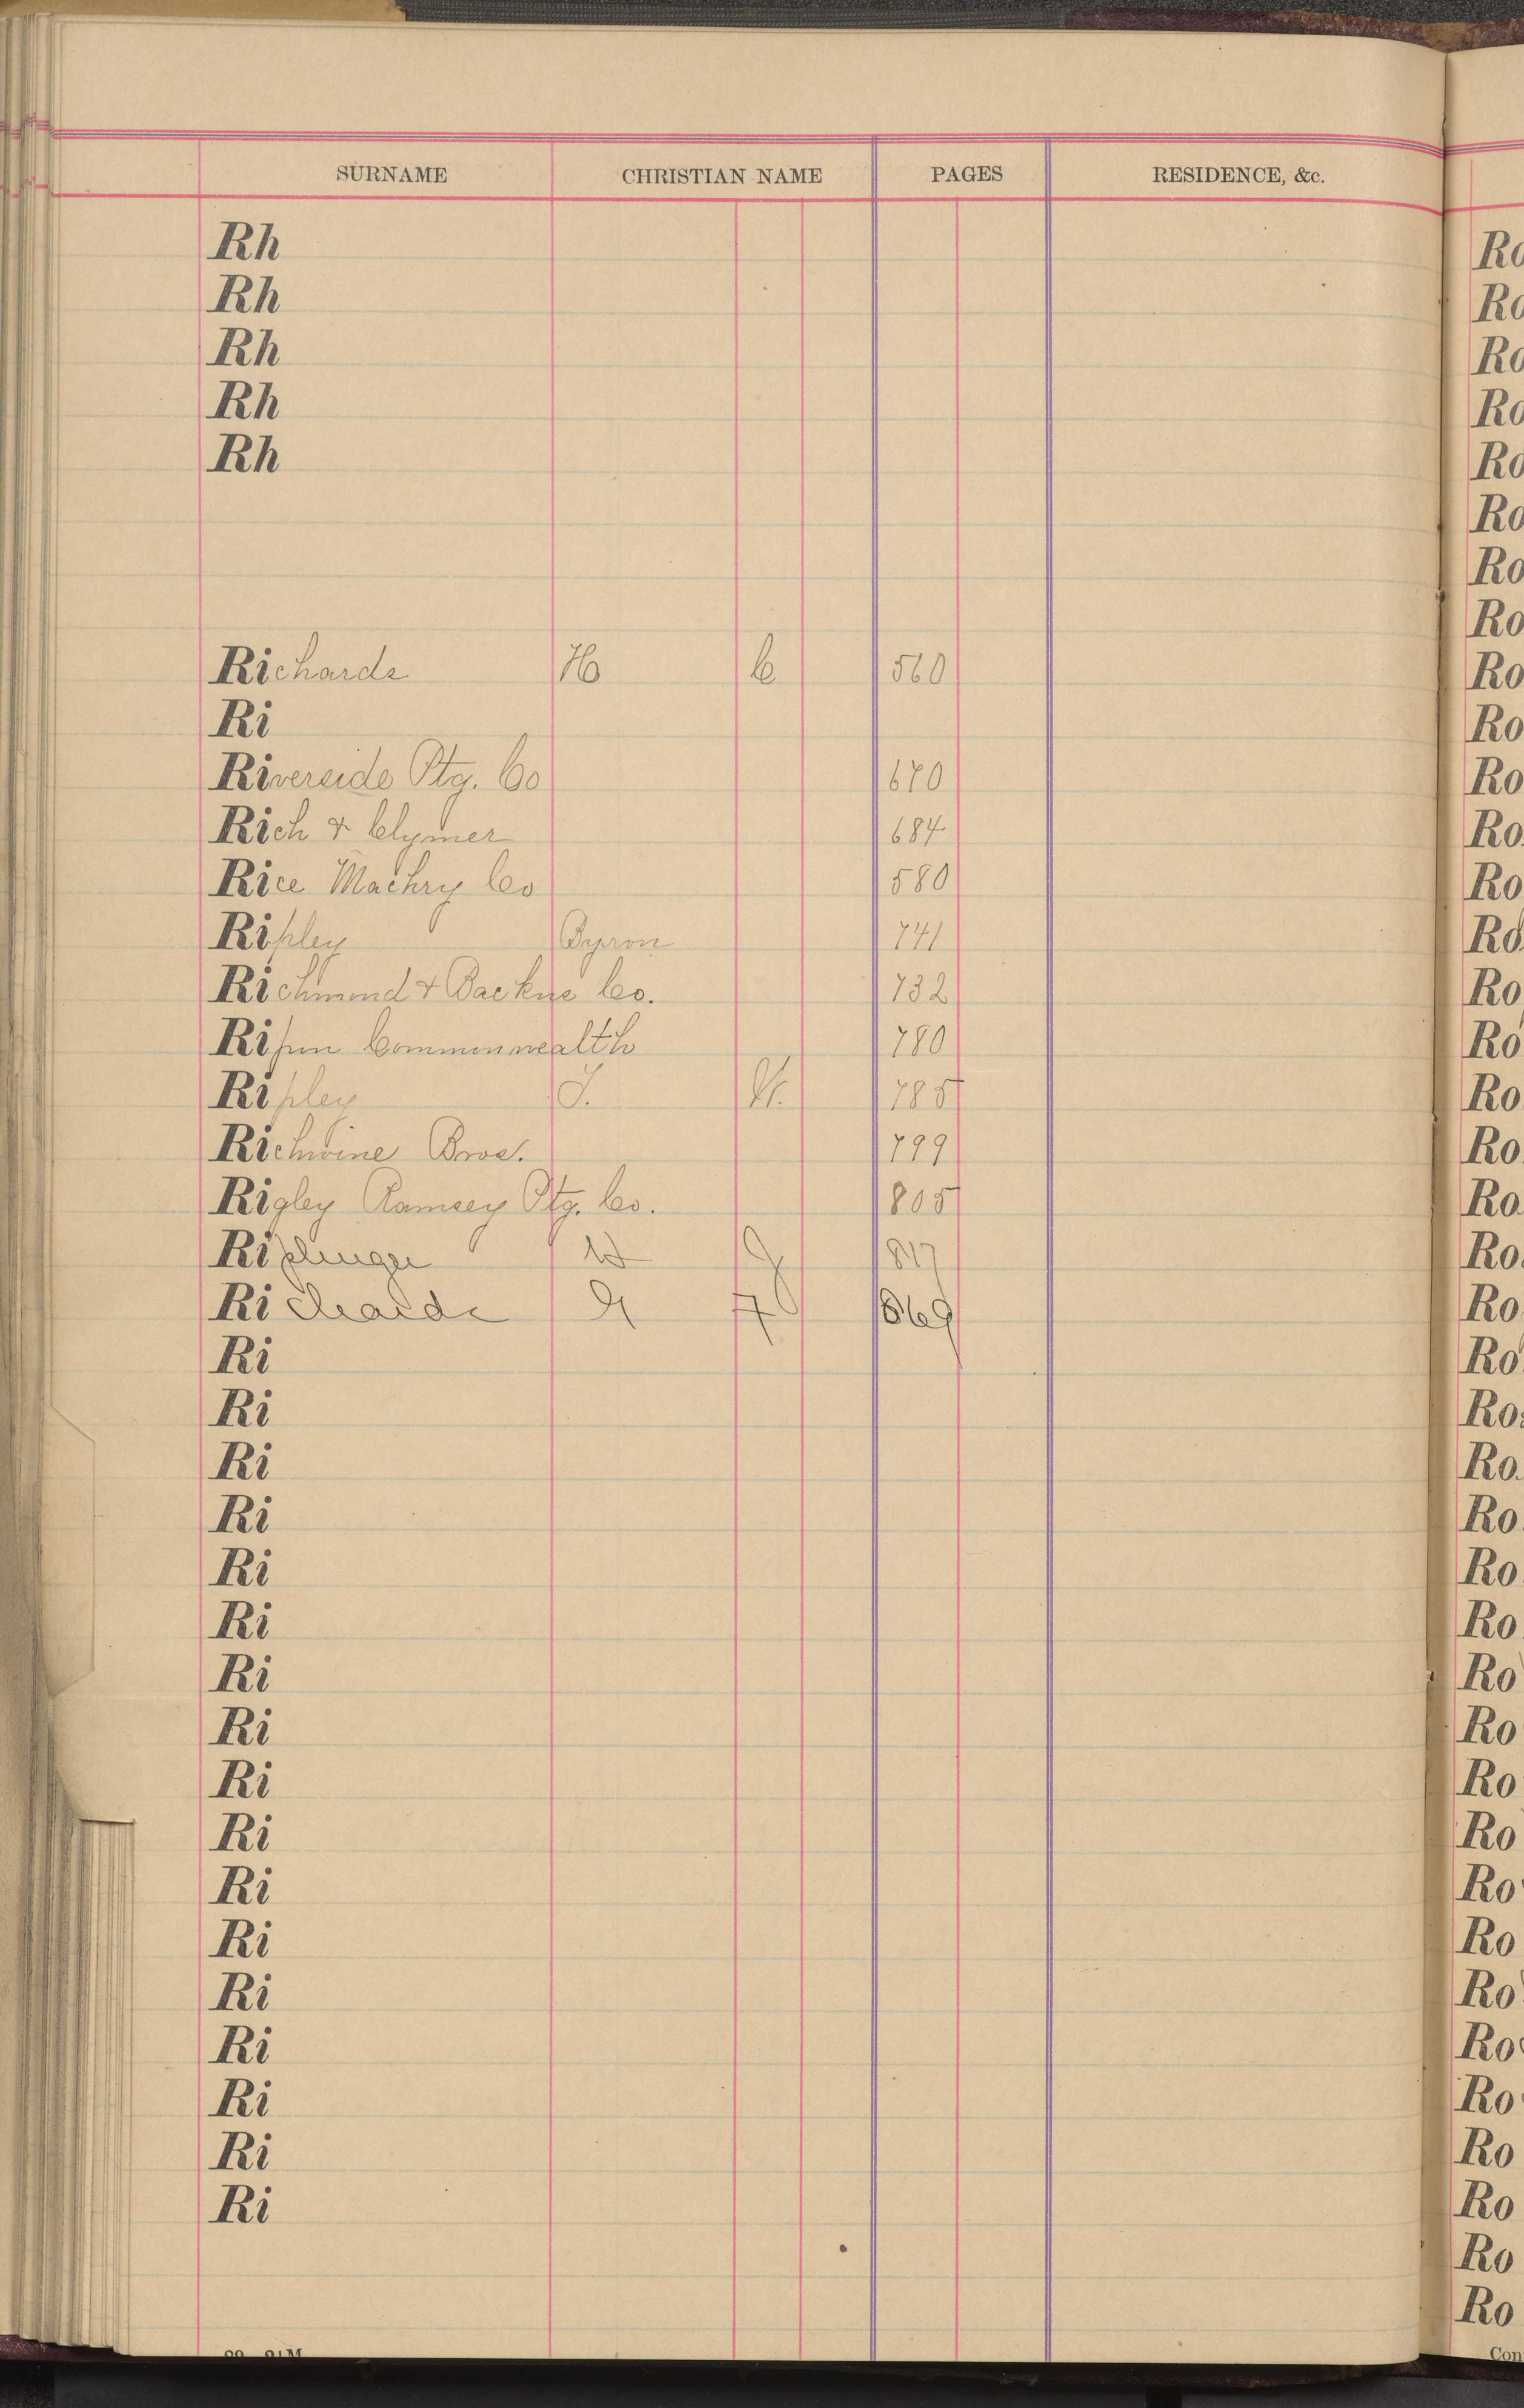 SURNAME CHRISTIAN NAME PAGES RESIDENCE, &c.
Rh
Rh
Rh
Rh
Rh
Richards H C 560
Ri
Riverside Ptg. Co 670
Rich & Clymer 684
Rice Machry Co 580
Ripley Byron 741
Richmond & Backus Co. 732
Ripon Commonwealth 780
Ripley J. 785
Richwine Bros. 799
Rigley Ramsey Ptg. Co. 805
Riplinger W J 817
Richards G F 869
Ri
Ri
Ri
Ri
Ri
Ri
Ri
Ri
Ri
Ri
Ri
Ri
Ri
Ri
Ri
Ri
Ri
Ro
Ro
Ro
Ro
Ro
Ro
Ro
Ro
Ro
Ro
Ro
Ro
Ro
Ro
Ro
Ro
Ro
Ro
Ro
Ro
Ro
Ro
Ro
Ro
Ro
Ro
Ro
Ro
Ro
Ro
Ro
Ro
Ro
Ro
Ro
Ro
Ro
Ro
Ro
Ro